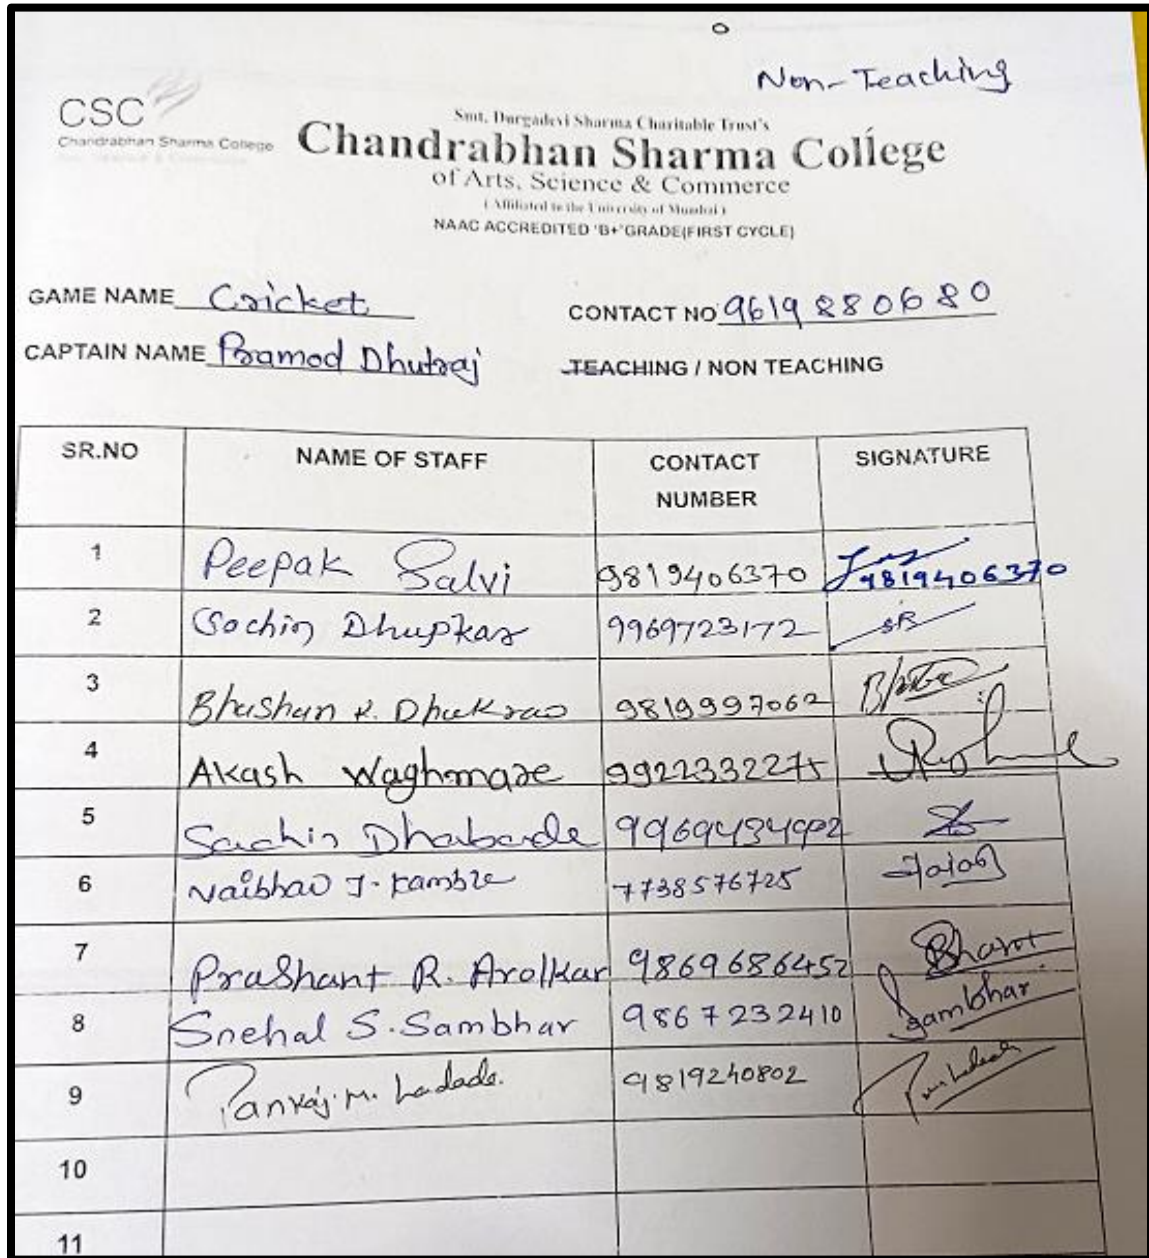 Non-Teaching
CSC
Chandrabhan Sharma College
Smt. Durgadevi Sharma Charitable Trust's
Chandrabhan Sharma College
of Arts, Science & Commerce
(Affiliated to the University of Mumbai)
NAAC ACCREDITED 'B+'GRADE(FIRST CYCLE)
GAME NAME Cricket CONTACT NO 9619880680
CAPTAIN NAME Pramod Dhutraj TEACHING / NON TEACHING
SR.NO NAME OF STAFF CONTACT NUMBER SIGNATURE
1 Deepak Salvi 9819406370 9819406370
2 Sachin Dhupkar 9969723172 SR
3 Bhushan R. Dhukrao 9819997062
4 Akash Waghmare 9922332275
5 Sachin Dhabarde 9969434902
6 Vaibhav J. Kamble 7738576725
7 Prashant R. Arolkar 9869686452
8 Snehal S. Sambhar 9867232410 Sambhar
9 Pankaj M. Ladade. 9819240802
10
11